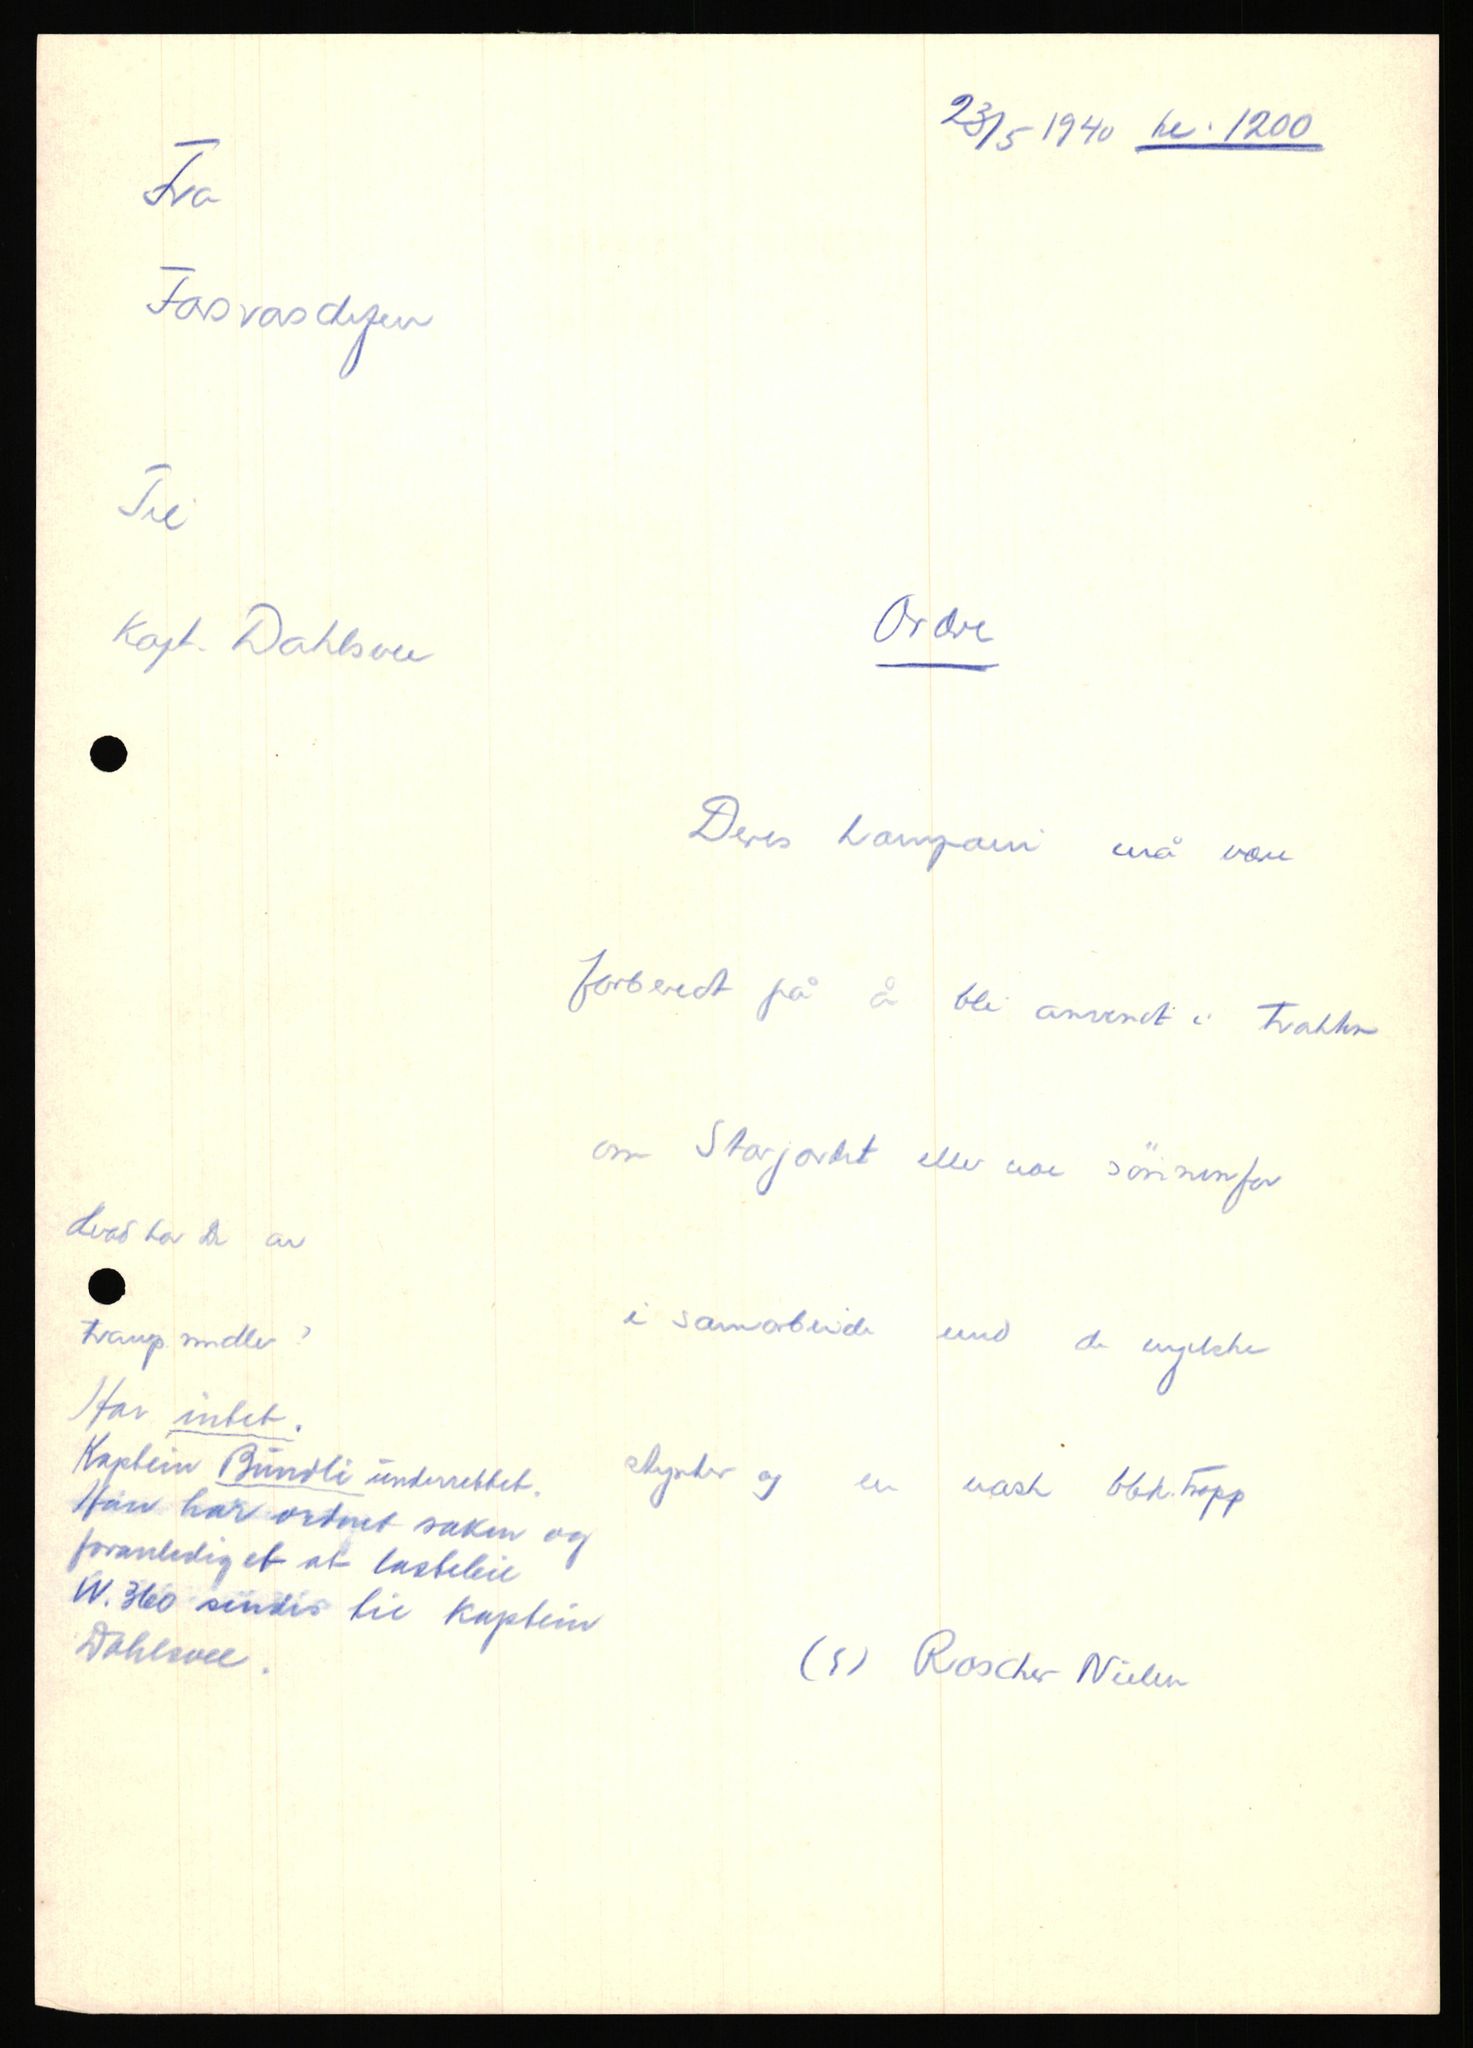 23/5 1940 kl. 1200
Fra
Forsvarssjefen
Til
Kapt. Dahlsvee
Ordre
Deres kompani må være
forberedt på å bli anvendt i trakten
om Storjordet eller noe sönnenfor
i samarbeide med de engelske
styrker og en norsk bbk. tropp
(s) Roscher Nielsen
Hvad har De av
transp. midler?
Har intet.
Kaptein Bündli underrettet.
Han har ordnet saken og
foranlediget at lastebil
W. 360 sendes til Kaptein
Dahlsvee.